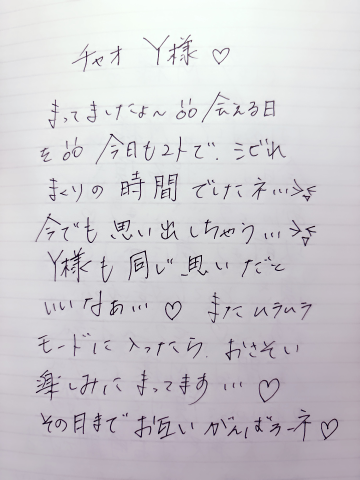 チャオ Y様♡
まってましたよ〜 会える日
を 今日もコトで、シビれ
まくりの時間でしたネ…
今でも思い出しちゃう…
Y様も同じ思いだと
いいなぁ…♡ またムラムラ
モードに入ったら、おさそい
楽しみにまってます…♡
その日までお互いがんばろーネ♡